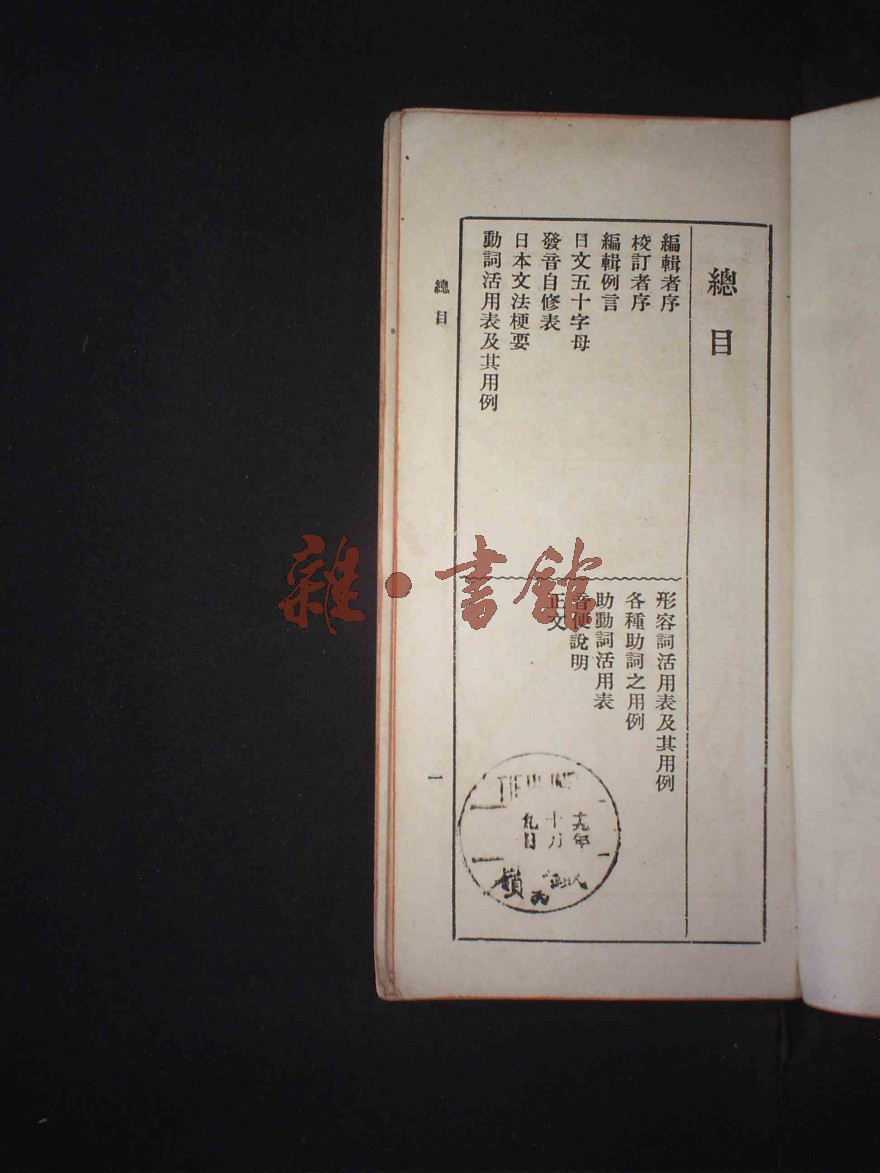 總目
編輯者序
校訂者序
編輯例言
日文五十字母
發音自修表
日本文法梗要
動詞活用表及其用例
形容詞活用表及其用例
各種助詞之用例
助動詞活用表
音便說明
正文
總目
一
十九年
十月
九日
嶺
雜·書館